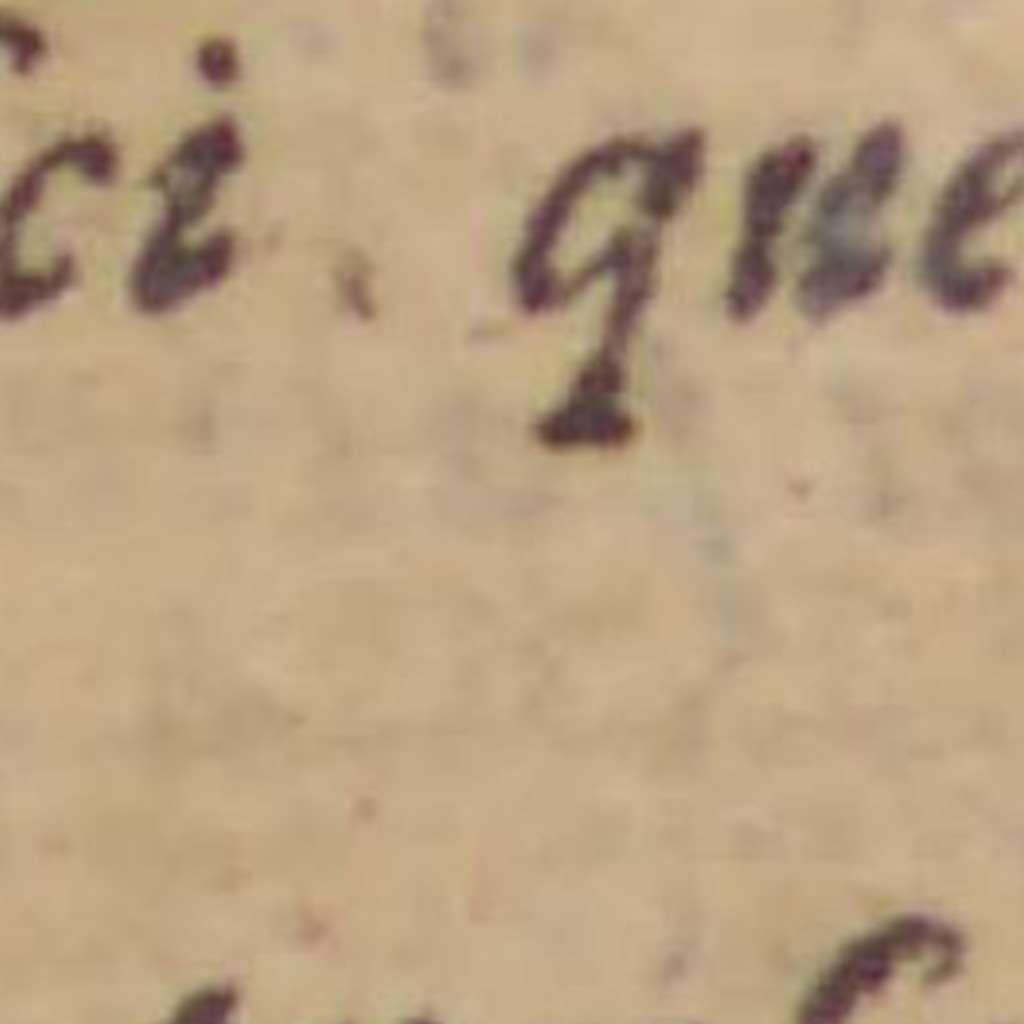 ci, que